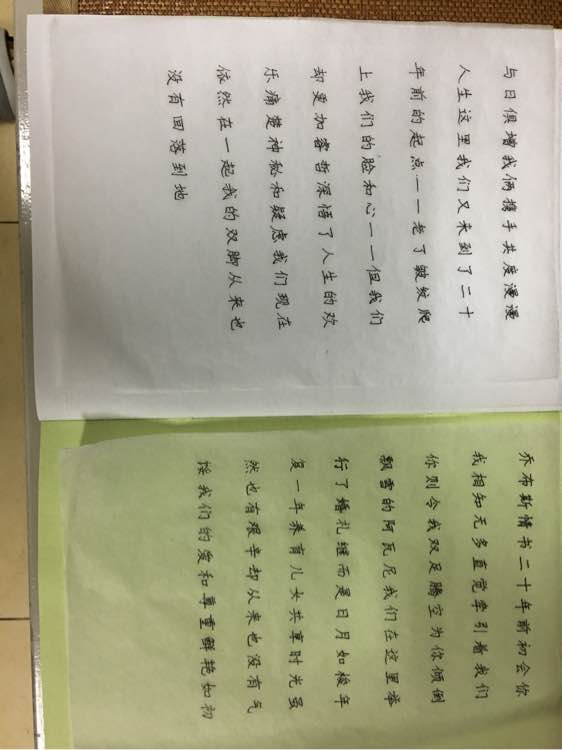 乔布斯情书二十年前初会你
我相知无多直觉牵引着我们
你则令我双足腾空为你倾倒
飘雪的阿瓦尼我们在这里举
行了婚礼继而是日月如梭年
复一年养育儿女共享时光虽
然也有艰辛却从来也没有气
馁我们的爱和尊重鲜艳如初
与日俱增我俩携手共度漫漫
人生这里我们又来到了二十
年前的起点一一老了皱纹爬
上我们的脸和心一一但我们
却更加睿哲深悟了人生的欢
乐痛楚神秘和疑虑我们现在
依然在一起我的双脚从来也
没有回落到地